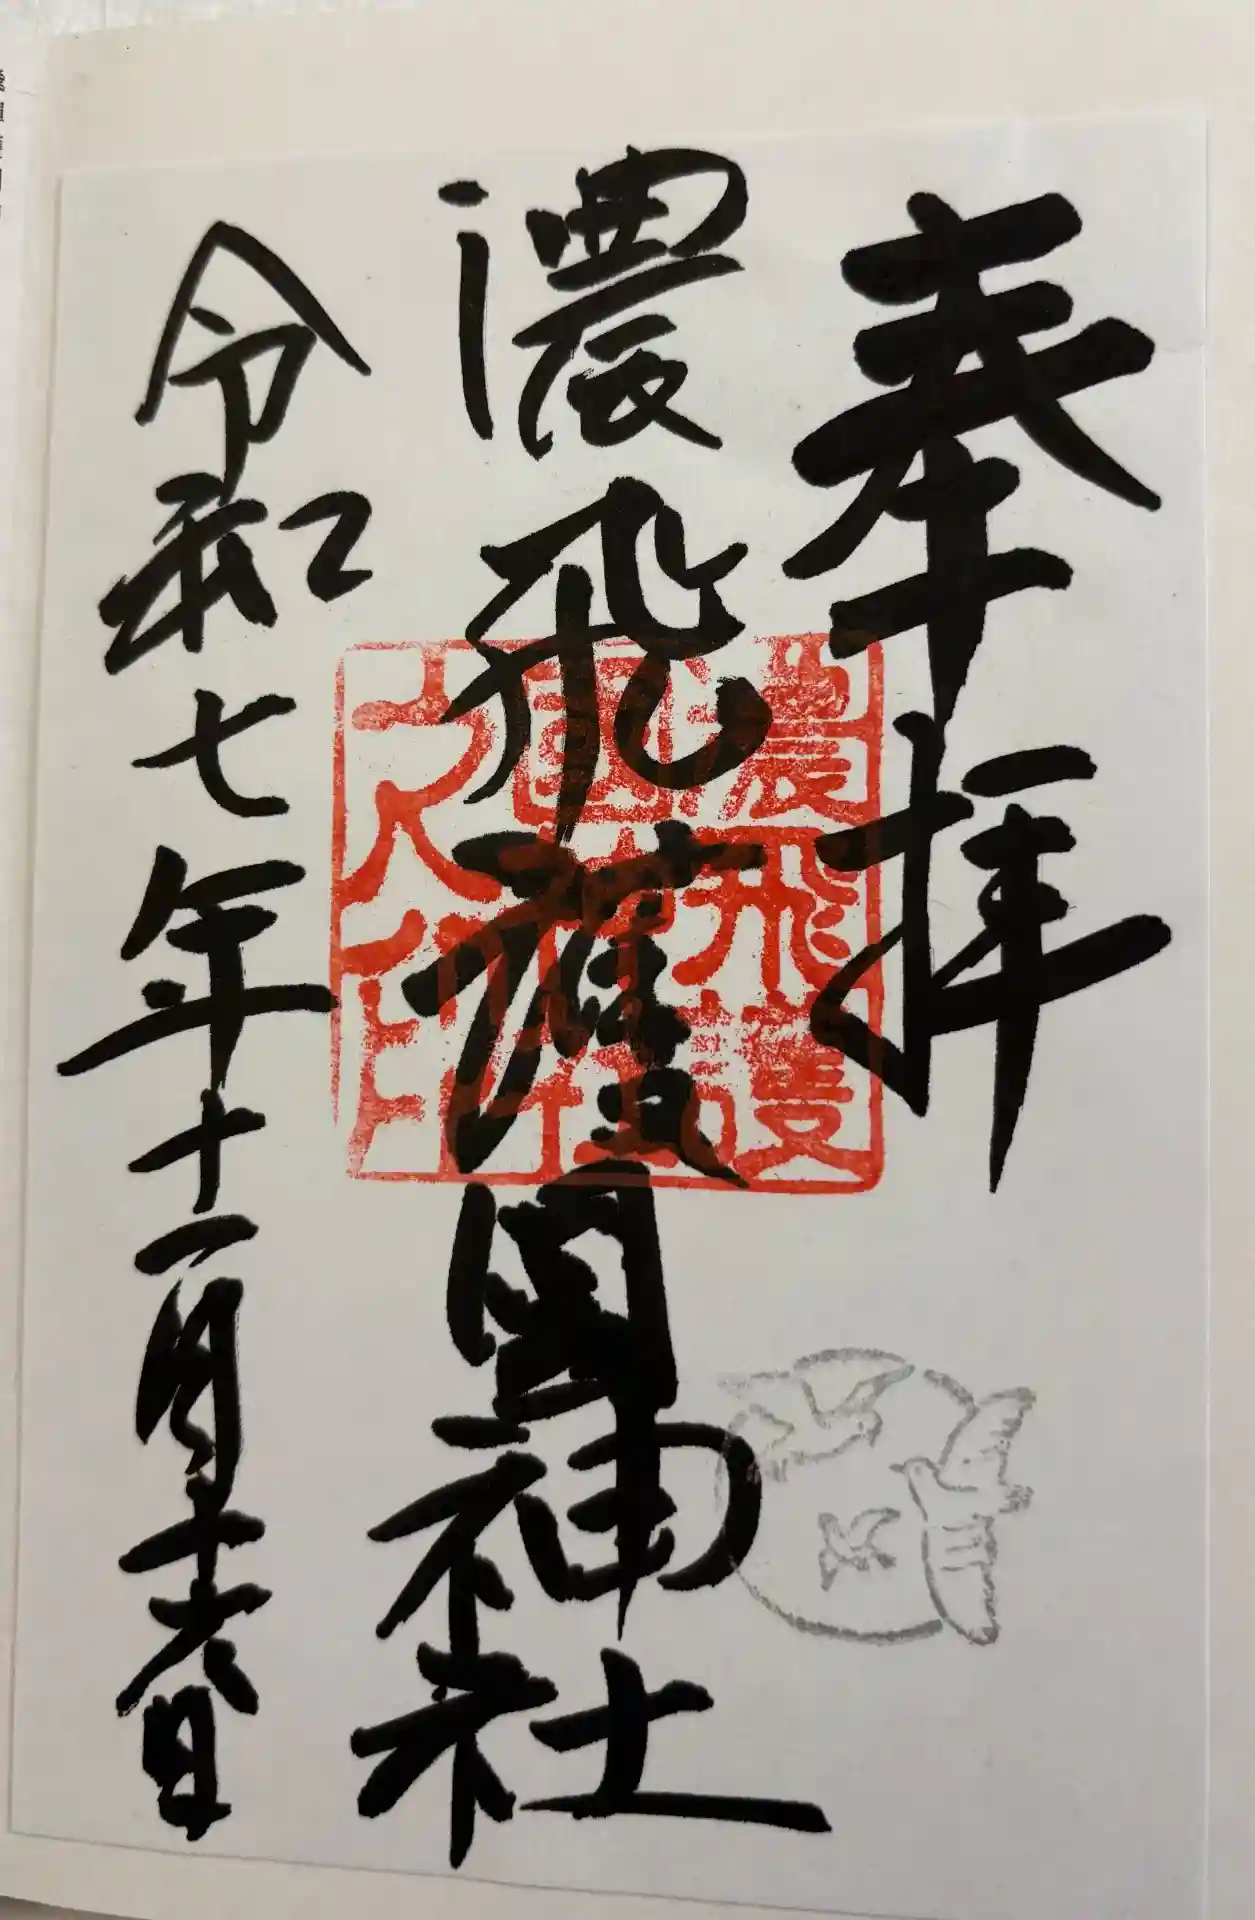 奉拝
濃飛護國神社
令和七年十一月十六日
濃飛護
國神社